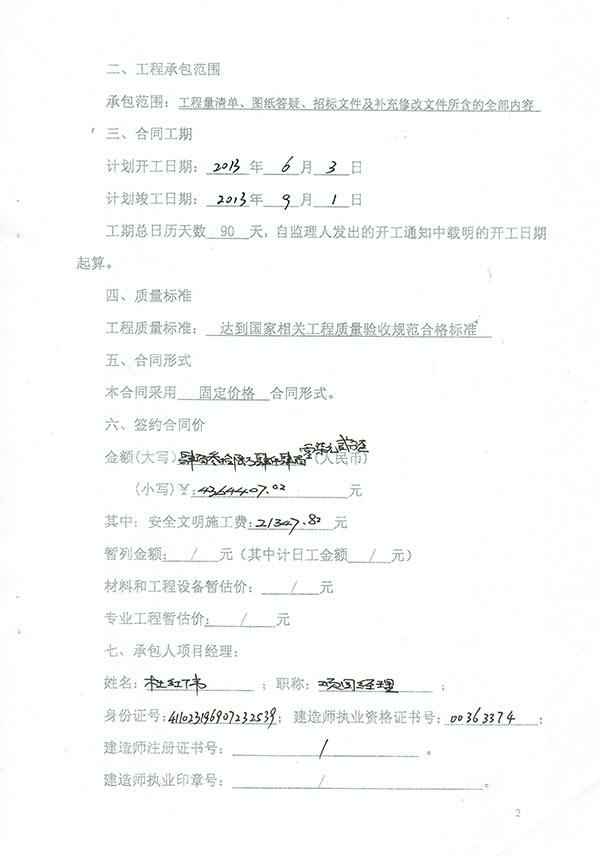 二、工程承包范围
承包范围：工程量清单、图纸答疑、招标文件及补充修改文件所含的全部内容
三、合同工期
计划开工日期：2013年6月3日
计划竣工日期：2013年9月1日
工期总日历天数 90 天，自监理人发出的开工通知中载明的开工日期
起算。
四、质量标准
工程质量标准：达到国家相关工程质量验收规范合格标准
五、合同形式
本合同采用 固定价格 合同形式。
六、签约合同价
金额(大写)：(人民币)
(小写)¥：4364407.02元
其中：安全文明施工费：21347.82元
暂列金额：/元（其中计日工金额/元）
材料和工程设备暂估价：/元
专业工程暂估价：/元
七、承包人项目经理：
姓名：杜红伟；职称：项目经理；
身份证号：；建造师执业资格证书号：00363374；
建造师注册证书号：/。
建造师执业印章号：/。
2